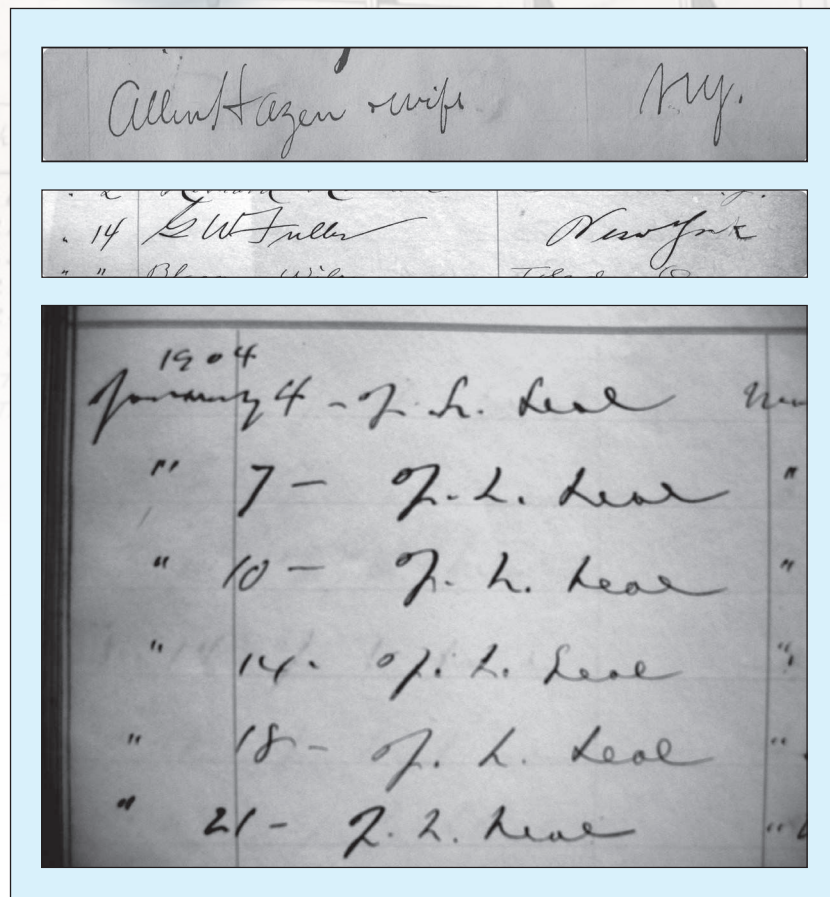 Allen Hazen & wife N.Y.
" 14 G W Fuller New York
1904
January 4 - J. L. Leal
" 7 - J. L. Leal "
" 10 - J. L. Leal "
" 14 - J. L. Leal "
" 18 - J. L. Leal "
" 21 - J. L. Leal "